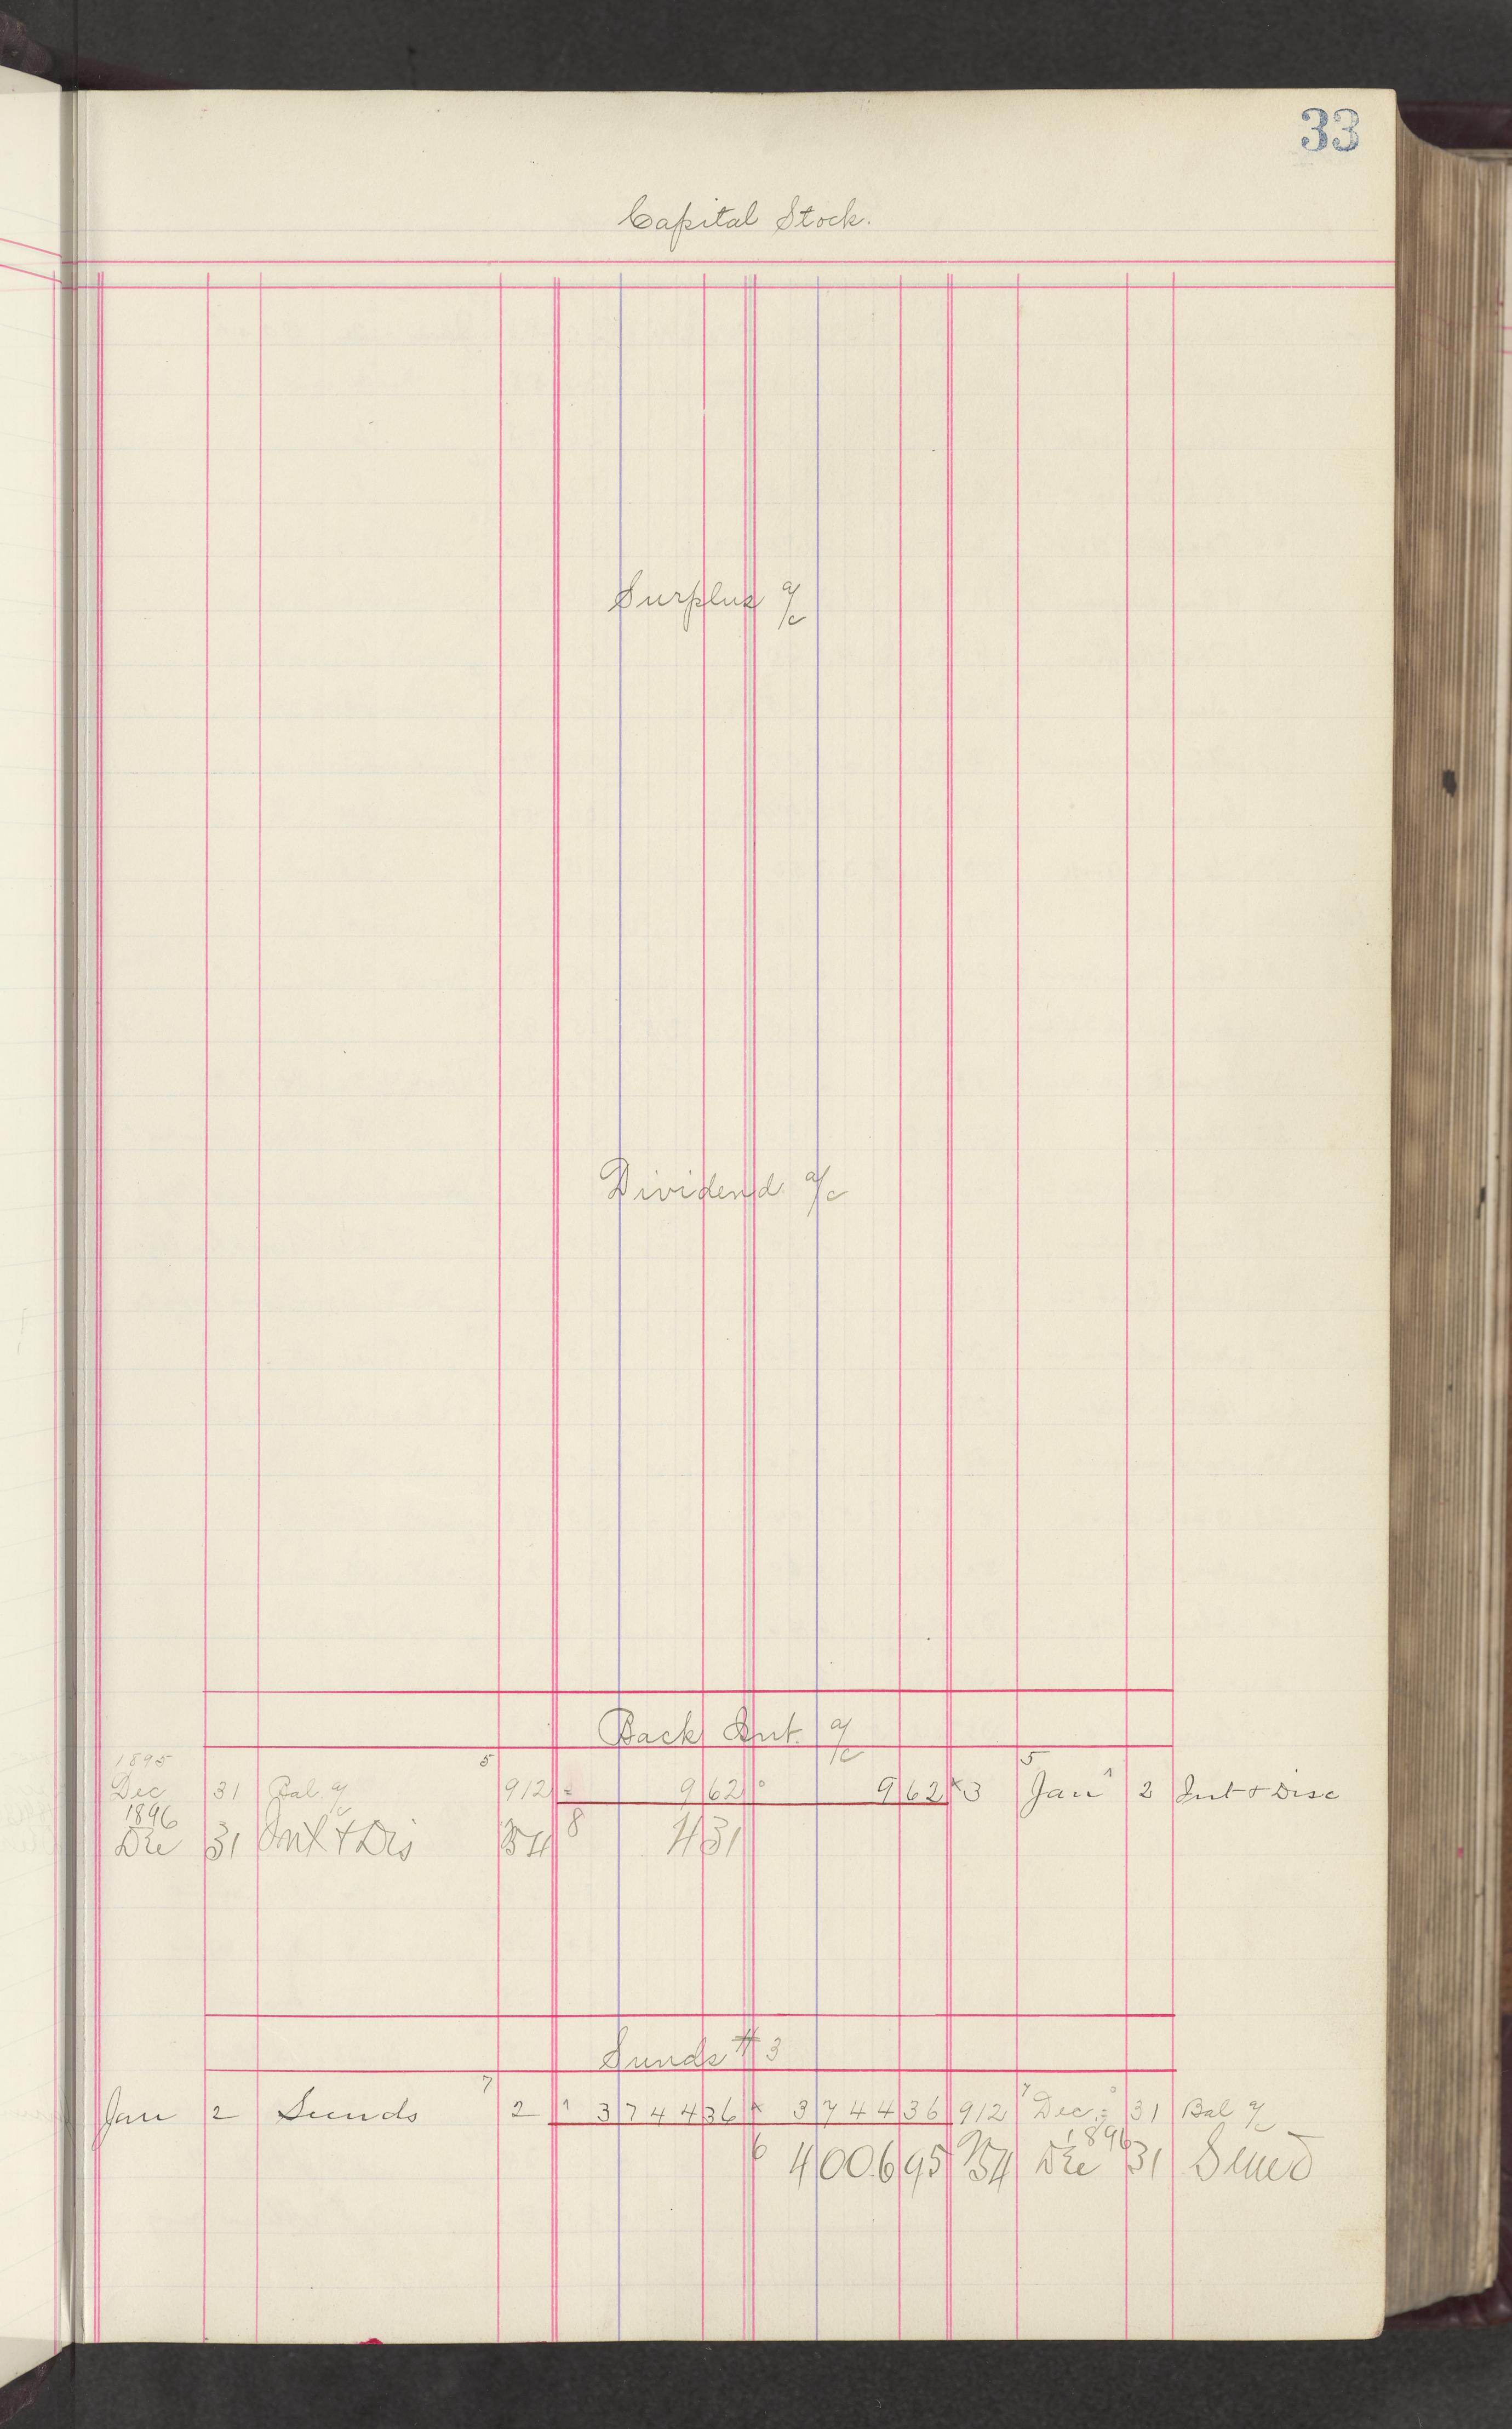 33
Capital Stock.
Surplus a/c
Dividend a/c
Back Int. a/c
1895 5 5
Dec 31 Bal a/c 912 9 62 9 62 3 Jan 2 Int & Disc
1896 8
Dec 31 Int & Dis 354 4 31
Sunds # 3
7 7
Jan 2 Sunds 2 3 744 36 3 744 36 912 Dec 31 Bal a/c
1896
6 4 006 95 354 Dec 31 Sund